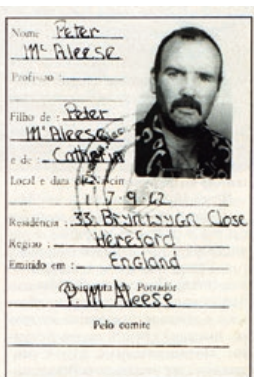 Nome Peter
Mc Aleese
Profissao :
Filho de : Peter
M'Aleese
e de : Catherin
Local e data de Nascin
7-9-42
Residência : 33. Close
Regiao : Hereford
Emitido em : England
Assinatura do Portador
P. Mc Aleese
Pelo comite